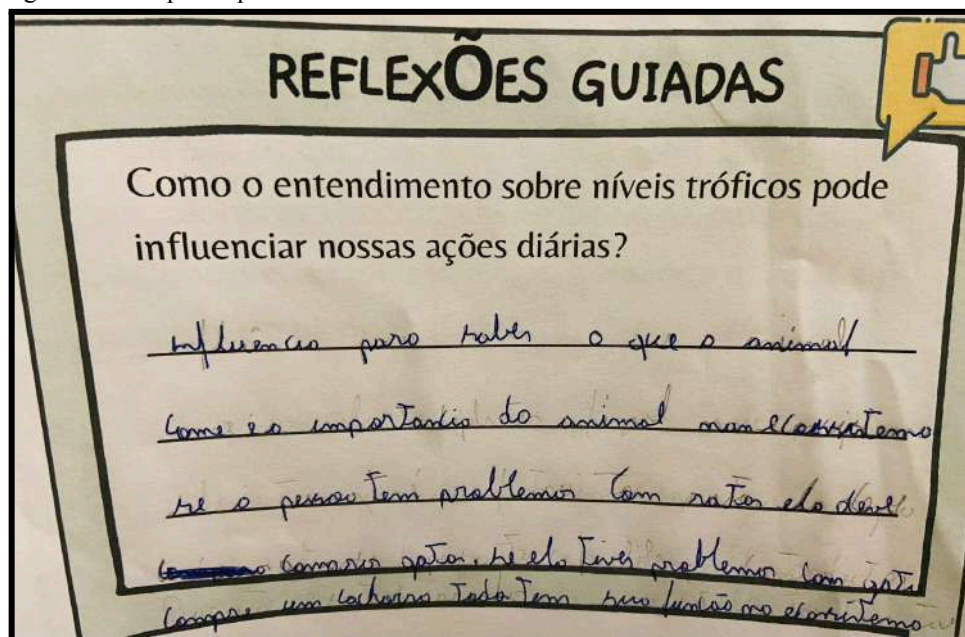 REFLEXÕES GUIADAS
Como o entendimento sobre níveis tróficos pode
influenciar nossas ações diárias?
influencia para saber o que o animal
come e a importancia do animal num
se a pessoa tem problemas com ratos ela deve
gatos, se ela tiver problemas com gato
compre um cachorro toda tem sua função no